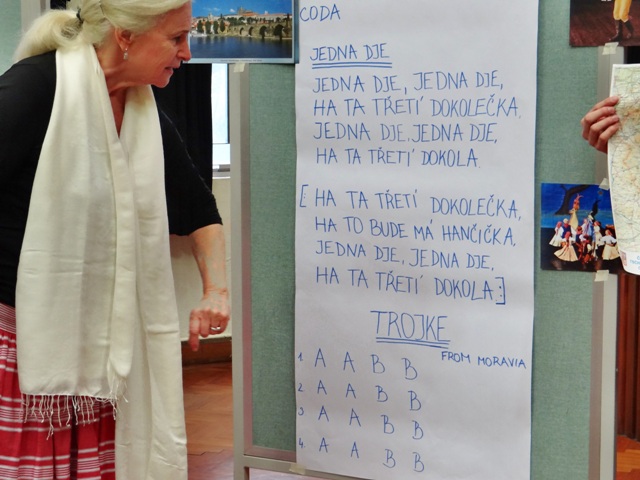 CODA
JEDNA DJE
JEDNA DJE, JEDNA DJE,
HA TA TŘETÍ DOKOLEČKA.
JEDNA DJE, JEDNA DJE,
HA TA TŘETÍ DOKOLA.
[ HA TA TŘETÍ DOKOLEČKA,
HA TO BUDE MÁ HANČIČKA,
JEDNA DJE, JEDNA DJE,
HA TA TŘETÍ DOKOLA :]
TROJKE
FROM MORAVIA
1. A A B B
2. A A B B
3 A A B B
4. A A B B